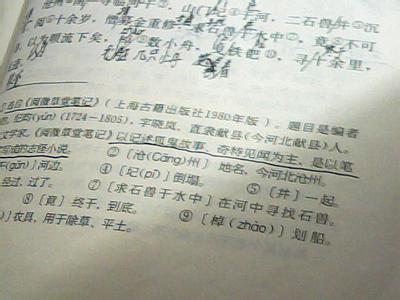 沧州②南一寺临河干③，山门④圮于河，二石兽并⑤沉
阅⑥十余岁，僧募金重修，求石兽于水中⑦，竟⑧不可
以为顺流下矣，棹⑨数小舟，曳铁钯⑩，寻十余里，
选自《阅微草堂笔记》（上海古籍出版社1980年版）。题目是编者
纪昀(yún)（1724—1805），字晓岚，直隶献县（今河北献县）人。
文学家。《阅微草堂笔记》以记述狐鬼故事、奇特见闻为主，是以笔
写成的志怪小说。 ②〔沧(Cāng)州〕地名，今河北沧州。
(gān)〕河边。 ④〔圮(pǐ)〕倒塌。 ⑤〔并〕一起。
经过，过了。 ⑦〔求石兽于水中〕在河中寻找石兽。
⑧〔竟〕终于，到底。 ⑨〔棹(zhào)〕划船。
〕农具，用于除草、平土。